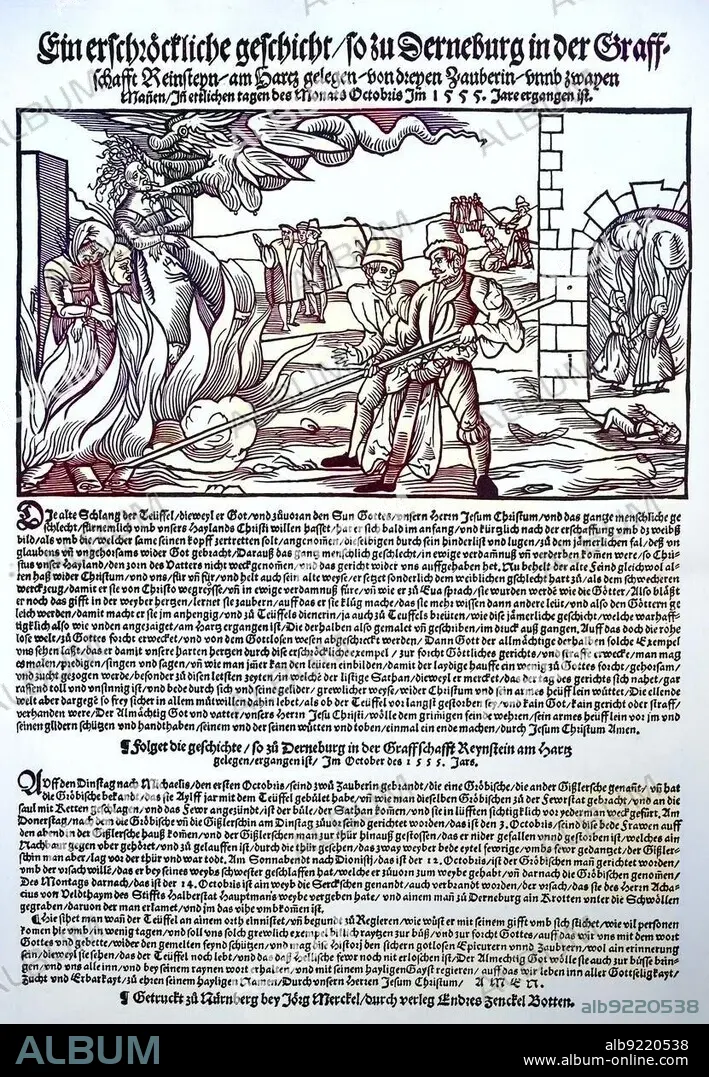 Ein erschröckliche geschicht / so zu Derneburg in der Graff-
schafft Reinsteyn / am Hartz gelegen / von dreyen Zauberin / vnnd zwayen
Mañen / Jñ etlichen tagen des Monats Octobris Jm 1555. Jare ergangen ist.
DJe alte Schlang der Teüffel / dieweyl er Got / vnd zůuoran den Sun Gottes / vnsern Herrn Jesum Christum / vnd das gantze menschliche ge
schlecht / fürnemlich vmb vnsers Haylands Christi willen hasset / hat er sich bald im anfang / vnd kürtzlich nach der erschaffung dz weibß
bild / als vmb die / welcher same seinen kopff zertretten solt / angenom̃en / dieselbigen durch sein hinderlist vnd lugen / zů dem jämerlichen fal / deß vn
glaubens vñ vngehorsams wider Got gebracht / Darauß das gantz menschlich geschlecht / in ewige verdamnuß vñ verderben kom̃en were / so Chri-
stus vnser Hayland / den zorn des Vatters nicht weckgenom̃en / vnd das gericht wider vns auffgehaben het. Nu behelt der alte Feind gleichwol al-
ten haß wider Christum / vnd vns / für vñ für / vnd helt auch sein alte weyse / er setzet sonderlich dem weiblichen gschlecht hart zů / als dem schwecheren
werckzeug / damit er sie von Christo wegreysse / vñ in ewige verdamnuß füre / vñ wie er zů Eua sprach / sie wurden werdē wie die Götter / Also bläßt
er noch das gifft in der weyber hertzen / lernet sie zaubern / auff das er sie klůg mache / das sie mehr wissen dann andere leüt / vnd also den Göttern ge
leich werden / damit macht er sie jm anhengig / vnd zů Teüffels dienerin / ja auch zů Teüffels breüten / wie dise jämerliche geschicht / welche warhaff-
tigklich also wie vnden angezaigt / am Hartz ergangen ist. Die derhalben also gemalet vñ geschriben / im druck auß gangen. Auff das doch die rohe
lose welt / zů Gottes forcht erwecket / vnd von dem Gottlosen wesen abgeschreckt werden / Dann Gott der allmächtige derhalben solche Exempel
vns sehen laßt / das er damit vnsere harten hertzen durch die erschröckliche exempel / zur forcht Götliches gerichts / vnd straffe erwecke / man mag
es malen / predigen / singen vnd sagen / vñ wie man jäner kan den leüten einbilden / damit der laydige hauffe ein wenig zů Gottes forcht / gehorsam /
vnd zucht gezogen werde / besonder zů disen letsten zeyten / in welche der listige Sathan / dieweyl er mercket / das der tag des gerichts sich nahet / gar
rassend toll vnd vnsinnig ist / vnd bede durch sich vnd seine gelider / grewlicher weyse / wider Christum vnd sein armes heüfflein wüttet / Die ellende
welt aber dargegē so frey sicher in allem můtwillen dahin lebet / als ob der Teüffel vor langst gestorben sey / vnd kain Got / kain gericht oder straff /
verhanden were / Der Allmächtig Got vnd vatter / vnsers Herrn Jesu Christi / wölle dem grimmigen feinde wehren / sein armes heüfflein vor jm vnd
seinen glidern schützen vnd handthaben / vnd der seinen wüten vnd toben / einmal ein ende machen / durch Jesum Christum Amen.
¶ Folget die geschichte / so zů Derneburg in der Graffschafft Reynstein am Hartz
gelegen / ergangen ist / Jm October des 1555. Jars.
AVff den Dinstag nach Michaelis / den ersten Octobris / seind zwů Zauberin gebrandt / die eine Gröbische / die ander Gißlersche genañt / vñ hat
die Gröbische bekandt / das sie Aylff jar mit dem Teüffel gebůlet habe / vñ wie man dieselben Gröbischen zů der Fewrstat gebracht / vnd an die
saul mit Ketten geschlagen / vnd das Fewr angezündt / ist der bůle / der Sathan kom̃en / vnd sie in lüfften sichtigklich vor jederman weck gefürt. Am
Donerstag / nach dem die Gröbische vñ die Gißlerschin am Dinstag zůuor seind gerichtet worden / das ist den 3. Octobris / seind die bede Frawen auff
den abend in der Gißlersche hauß kom̃en / vnd der Gißlerschen man zur thür hinauß gestossen / das er nider gefallen vnnd gestorben ist / welches ain
Nachbaur gegen vber gehöret / vnd zů gelauffen ist / durch die thür gesehen / das zway weyber bede eytel fewrige / vmbs fewr gedantzet / der Gißler-
schin man aber / lag vor der thür vnd war todt. Am Sonnabendt nach Dionisij / das ist der 12. Octobris / ist der Gröbischen mañ gerichtet worden /
vmb der vrsach wille / das er bey seines weybs schwester geschlaffen hat / welche er zůuorn zum weybe gehabt / vñ darnach die Gröbischen genom̃en /
Des Montags darnach / das ist der 14. Octobris ist ain weyb die Serckschen genandt / auch verbrandt worden / der vrsach / das sie des Herrn Acha-
cius von Veldthaym des Stiffts Halberstat Hauptmans weybe vergeben hate / vnd ainem mañ zů Derneburg ain Krotten vnter die Schwöllen
gegraben / daruon der man erlamet / vnd jm das vihe vmbkom̃en ist.
¶ Hie sihet man wañ der Teüffel an ainem orth einnistet / vñ begundt zů Regieren / wie wüst er mit seinem gifft vmb sich stichet / wie vil personen
kom̃en hie vmb / in wenig tagen / vnd soll vns solch grewlich exempel billich raytzen zur bůß / vnd zur forcht Gottes / auff das wir vns mit dem wort
Gottes vnd gebette / wider den gemelten feynd schützen / vnd mag dise Historj den sichern gotlosen Epicurern vnnd Zaubern / wol ain erinnerung
sein / dieweyl sie sehen / das der Teüffel noch lebt / vnd das daß Hellische fewr noch nit erloschen ist. Der Almechtig Got wölle sie auch zur bůsse brin-
gen / vnd vns alle inn / vnd bey seinem raynen wort erhalten / vnd mit seinem hayligen Gayst regieren / auff das wir leben inn aller Gottseligkayt /
Zucht vnd Erbarkayt / zů ehren seinem hayligen Namen / Durch vnsern Herren Jesum Christum / A M E N.
¶ Getruckt zů Nürnberg bey Jörg Merckel / durch verleg Endres Zenckel Botten.
alb9220538
ALBUM
alb9220538
www.album-online.com